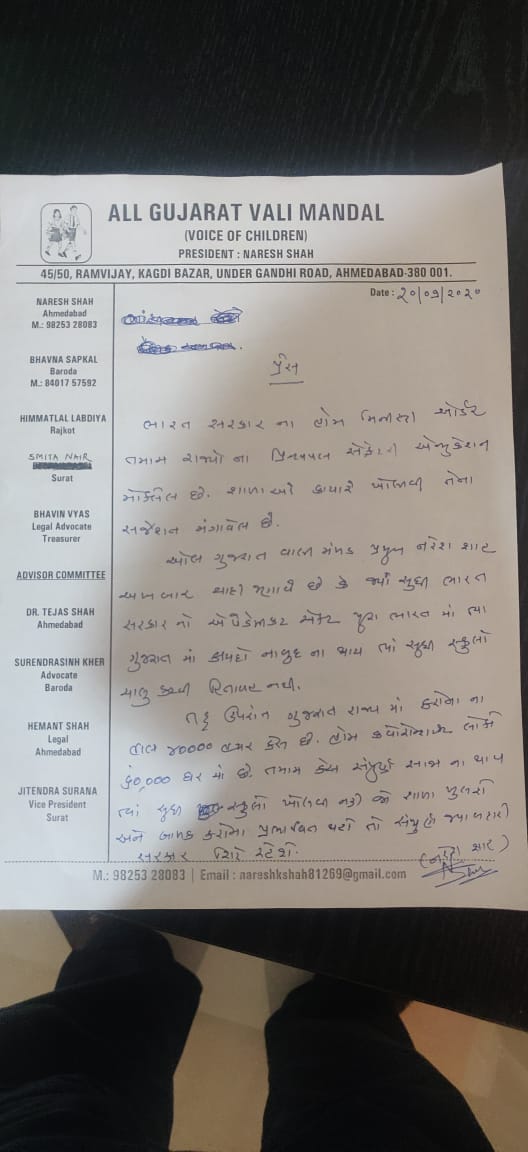 ALL GUJARAT VALI MANDAL
(VOICE OF CHILDREN)
PRESIDENT : NARESH SHAH
45/50, RAMVIJAY, KAGDI BAZAR, UNDER GANDHI ROAD, AHMEDABAD-380 001.
Date : ૨૦/૦૧/૨૦૨૦
NARESH SHAH
Ahmedabad
M.: 98253 28083
BHAVNA SAPKAL
Baroda
M.: 84017 57592
HIMMATLAL LABDIYA
Rajkot
SMITA NAIR
Surat
BHAVIN VYAS
Legal Advocate
Treasurer
ADVISOR COMMITTEE
DR. TEJAS SHAH
Ahmedabad
SURENDRASINH KHER
Advocate
Baroda
HEMANT SHAH
Legal
Ahmedabad
JITENDRA SURANA
Vice President
Surat
પ્રેસ
ભારત સરકાર ના હોમ મિનીસ્ટ્રી ઓર્ડર
તમામ રાજ્યો ના પ્રિન્સીપલ સેક્રેટરી એજ્યુકેશન
મોકલેલ છે. શાળાઓ ક્યારે ખોલવી તેના
સજેશન મંગાવેલ છે.
ઓલ ગુજરાત વાલી મંડળ પ્રમુખ નરેશ શાહ
જણાવે છે કે જ્યાં સુધી ભારત
સરકાર નો એક્ટ પુરા ભારત માં ત્યા
ગુજરાત માં કાયદો નાબુદ ના થાય ત્યાં સુધી સ્કુલો
ચાલુ કરવી હિતાવહ નથી.
તદ્ ઉપરાંત ગુજરાત રાજ્ય માં કરોના ના
હાલ ૪૦૦૦૦ ઉપર કેસ છે. હોમ લોકો
૬૦,૦૦૦ ઘર માં છે. તમામ કેસ સંપુર્ણ સાજા ના થાય
ત્યાં સુધી સ્કુલો ખોલવી નહીં જો શાળા ખુલશે
અને બાળક કરોના પ્રભાવિત થશે તો સંપુર્ણ જવાબદારી
સરકાર શિરે રહેશે.
(નરેશ શાહ)
M.: 98253 28083 | Email : nareshkshah81269@gmail.com